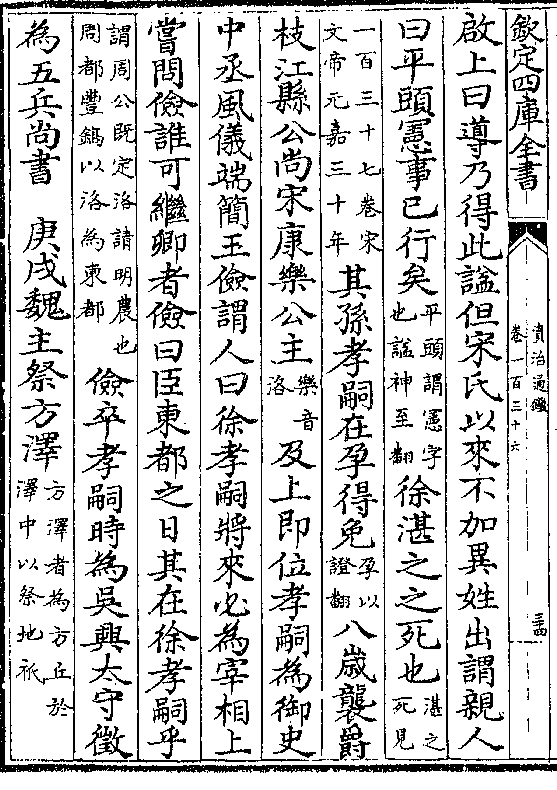 欽定四庫全書
資治通鑑
卷一百三十六
三四
啟上曰導乃得此諡但宋氏以來不加異姓出謂親人
曰平頭憲事已行矣平頭謂憲字也諡神至翻徐湛之之死也湛之死見
一百三十七卷宋文帝元嘉三十年其孫孝嗣在孕得免孕以證翻八歲襲爵
枝江縣公尚宋康樂公主樂音洛及上即位孝嗣為御史
中丞風儀端簡王儉謂人曰徐孝嗣將來必為宰相上
嘗問儉誰可繼卿者儉曰臣東都之日其在徐孝嗣乎
謂周公既定洛請明農也周都豐鎬以洛為東都儉卒孝嗣時為吳興太守徵
為五兵尚書 庚戌魏主祭方澤方澤者為方丘於澤中以祭地祇